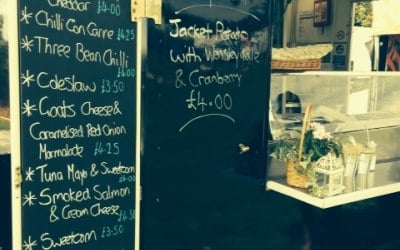 Cheddar £4.00
* Chilli Con Carne £4.25
* Three Bean Chilli
£4.00
* Coleslaw £3.50
* Goats Cheese &
Caramelised Red Onion
Marmalade £4.25
* Tuna Mayo & Sweetcorn
£4.00
* Smoked Salmon
& Cream Cheese
£4.50
* Sweetcorn £3.50
Jacket Potato
with Wensleydale
& Cranberry
£4.00